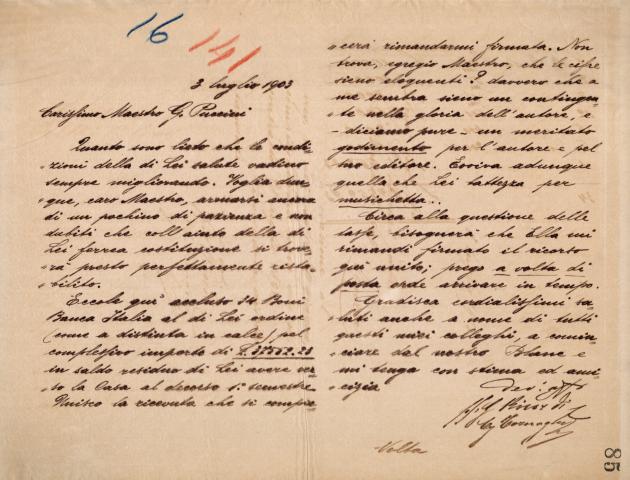 16 141
3 luglio 1903
Carissimo Maestro G. Puccini
Quanto sono lieto che le condi-
zioni della di Lei salute vadino
sempre migliorando. Voglia dun-
que, caro Maestro, armarsi ancora
di un pochino di pazienza e non
dubiti che coll'aiuto della di
Lei ferrea costituzione si trove-
rà presto perfettamente rista-
bilito.
Eccole qui accluso 34 Boni
Banca Italia al di Lei ordine
(come a distinta in calce) pel
complessivo importo di
in saldo residuo di Lei avere ver-
so la Casa al decorso 1º semestre
Unisco la ricevuta che si compia-
cerà rimandarmi firmata. Non
trova, egregio Maestro, che le cifre
sieno eloquenti? davvero che a
me sembra sieno un contingen-
te nella gloria dell'autore, e
- diciamo pure - un meritato
godimento per l'autore e pel
suo editore. Evviva adunque
quella che Lei battezza per
musichetta...
Circa alla questione delle
tasse, bisognerà che Ella mi
rimandi firmato il ricorso
qui unito; prego a volta di
posta onde arrivare in tempo.
Gradisca cordialissimi sa-
luti anche a nome di tutti
questi miei colleghi, a comin-
ciare dal nostro Blanc e
mi tenga con stima ed ami-
cizia
Volta
85